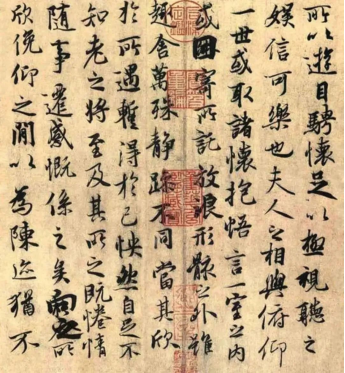 所以遊目騁懷足以極視聽之
娛信可樂也夫人之相與俯仰
一世或取諸懷抱悟言一室之內
或因寄所託放浪形骸之外雖
趣舍萬殊靜躁不同當其欣
於所遇蹔得於己怏然自足不
知老之將至及其所之既惓情
隨事遷感慨係之矣向之所
欣俛仰之閒以為陳迹猶不